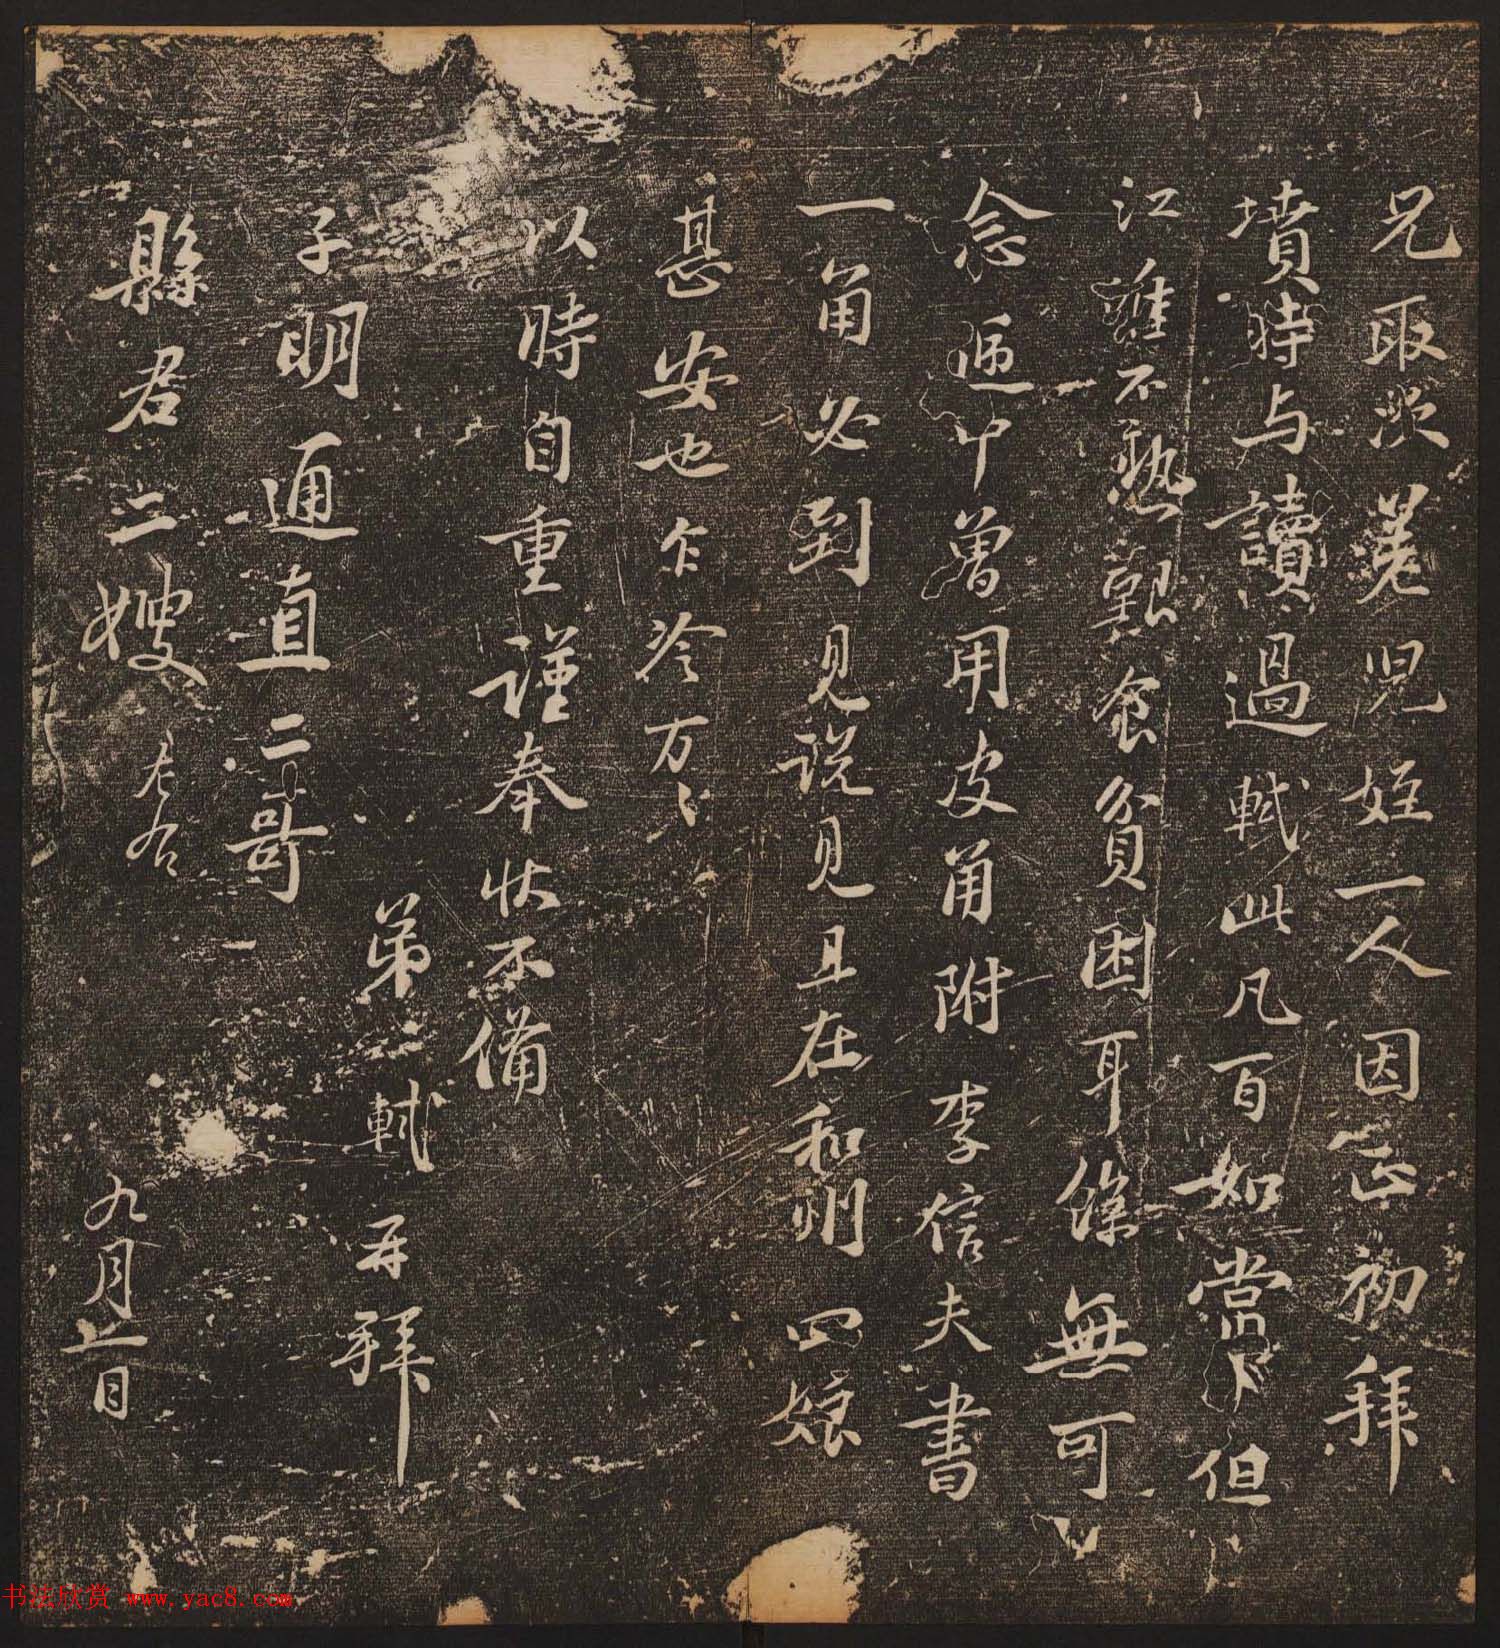 兄取次差児姪一人因正初拜
墳時与讀過軾此凡百如常但
江淮不熟艱食貧困耳餘無可
念逓中曾用皮角附李信夫書
一角必到見説見且在和州四娘
甚安也乍冷万々
以時自重謹奉狀不備
弟軾再拜
子明通直二哥
縣君二嫂左右
九月日
书法欣赏 www.yac8.com